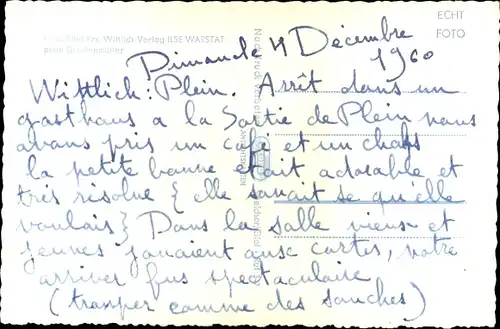 ECHT
FOTO
Wittlich Verlag ILSE WARSTAT
Dimanche 4 Décembre
1960
Wittlich: Plein. Arrêt dans un
gasthaus a la Sortie de Plein nous
avons pris un café et un chaps
la petite bonne était adorable et
très risolue { elle savait se qu'elle
voulais } Dans la salle vieux et
jeunes jouaient aux cartes, notre
arriver fus spectaculaire
(tramper comme des souches)